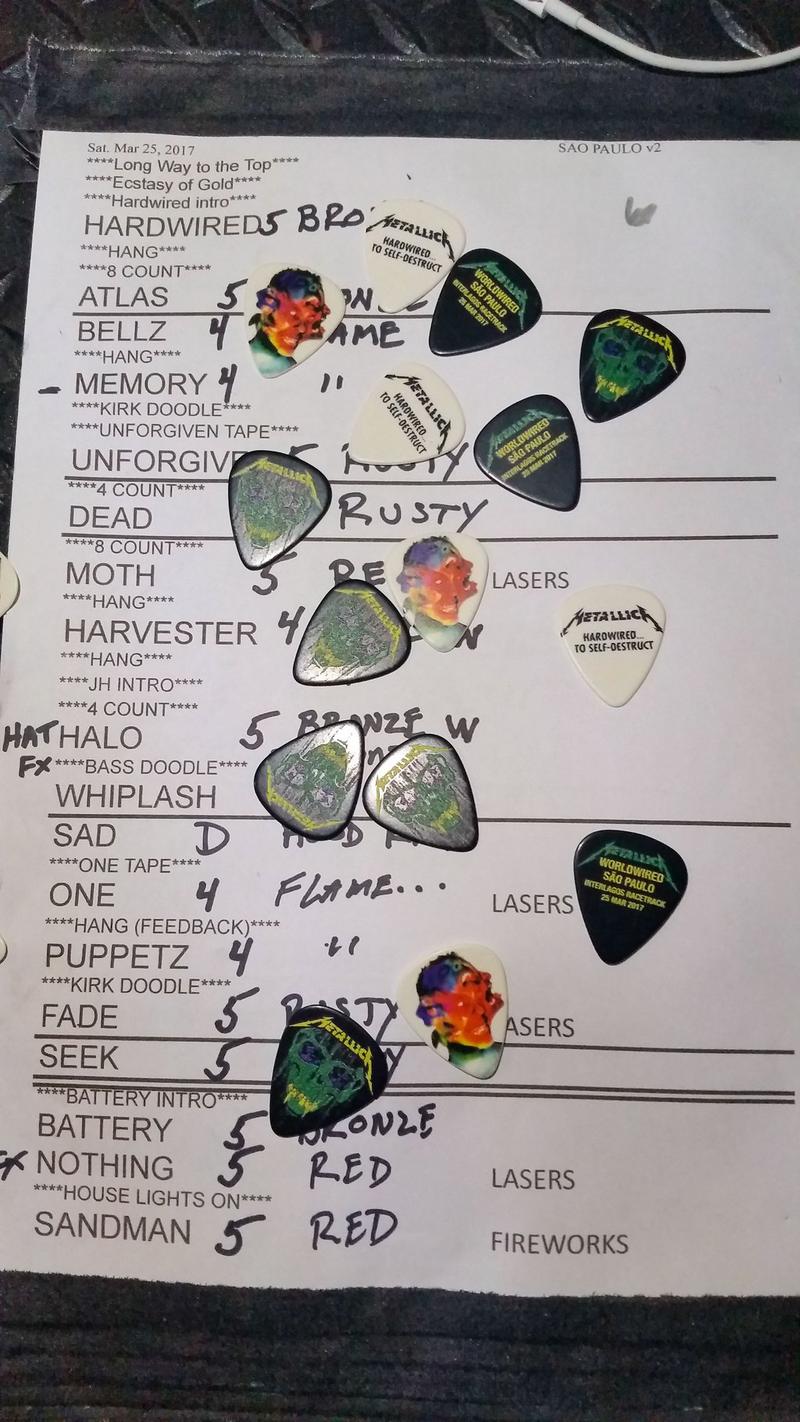 Sat. Mar 25, 2017 SAO PAULO v2
****Long Way to the Top****
****Ecstasy of Gold****
****Hardwired intro****
HARDWIRED 5 BRO
METALLICA
HARDWIRED...
TO SELF-DESTRUCT
****HANG****
****8 COUNT****
ATLAS 5
METALLICA
WORLDWIRED
SÃO PAULO
INTERLAGOS RACETRACK
25 MAR 2017
METALLICA
BELLZ 4 AME
****HANG****
- MEMORY 4 "
METALLICA
HARDWIRED...
TO SELF-DESTRUCT
****KIRK DOODLE****
****UNFORGIVEN TAPE****
METALLICA
WORLDWIRED
SÃO PAULO
INTERLAGOS RACETRACK
25 MAR 2017
UNFORGIV 5 RUSTY
METALLICA
****4 COUNT****
DEAD RUSTY
****8 COUNT****
MOTH 5 RE LASERS
****HANG****
HARVESTER 4 N
METALLICA
METALLICA
HARDWIRED...
TO SELF-DESTRUCT
****HANG****
****JH INTRO****
****4 COUNT****
HAT HALO 5 BRONZE W
FX ****BASS DOODLE****
METALLICA
METALLICA
WHIPLASH
SAD D
****ONE TAPE****
METALLICA
WORLDWIRED
SÃO PAULO
INTERLAGOS RACETRACK
25 MAR 2017
ONE 4 FLAME... LASERS
****HANG (FEEDBACK)****
PUPPETZ 4 "
****KIRK DOODLE****
FADE 5 RUSTY ASERS
METALLICA
SEEK 5 Y
****BATTERY INTRO****
BATTERY 5 BRONZE
FX NOTHING 5 RED LASERS
****HOUSE LIGHTS ON****
SANDMAN 5 RED FIREWORKS